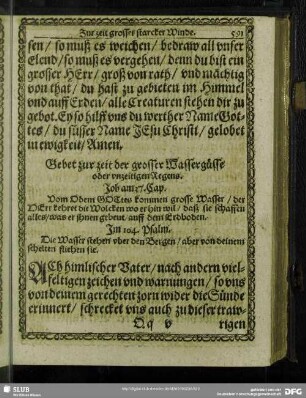 Zur zeit grosses starcker Winde. 591
sen / so muß es weichen / bedraw all vnser
elend / so muß es vergehen / denn du bist ein
grosser HErr / groß von rath / vnd mächtig
von that / du hast zu gebieten im Himmel
vnd auff Erden / alle Creaturen stehen dir zu
gebot. Ey so hilff vns du werther Name Got-
tes / du süsser Name JEsu Christi / gelobet
in ewigkeit / Amen.
Gebet zur zeit der grosser Wassergüsse
oder vnzeitigen Regens.
Job am 37. Cap.
Vom Odem GOttes kommen grosse Wasser / der
HErr kehret die Wolcken wo er hin wil / daß sie schaffen
alles / was er jhnen gebeut auff dem Erdboden.
Im 104. Psalm.
Die Wasser stehen vber den Bergen / aber von deinem
schelten fliehen sie.
ACh himlischer Vater / nach andern viel-
feltigen zeichen vnd warnungen / so vns
von deinem gerechten zorn wider die Sünde
erinnert / schrecket vns auch zu dieser traw-
Q q v rigen
SLUB
DFG